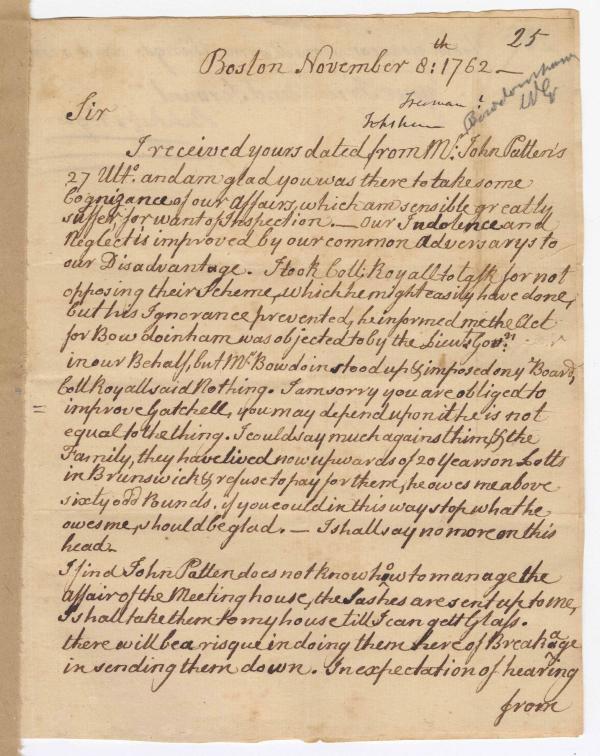 25
Boston November 8:th 1762 —
Bowdoinham
Freeman
Topsham
Sir
I received yours dated from Mr. John Patten's
27 Ulto. and am glad you was there to take some
Cognizance of our affairs, which am sensible greatly
suffer for want of Inspection. — Our Indolence and
Neglect is improved by our common Adversarys to
our Disadvantage. I took Coll: Royall to task for not
opposing their Scheme, which he might easily have done,
but his Ignorance prevented, he informed me the Act
for Bowdoinham was objected to by the Lieut. Govr.
in our Behalf, but Mr. Bowdoin stood up & imposed on ye Board,
Coll Royall said Nothing. I am sorry you are obliged to
improve Gatchell, you may depend upon it he is not
equal to the thing. I could say much against him & the
Family, they have lived now upwards of 20 Years on Lotts
in Brunswick & refuse to pay for them, he owes me above
sixty odd Pounds. if you could in this way stop what he
owes me, should be glad. — I shall say no more on this
head.
I find John Patten does not know how to manage the
affair of the Meeting house, the Sashes are sent up to me,
I shall take them to my house till I can gett Glass.
there will be a risque in doing them here of Breakage
in sending them down. In expectation of hearing
from